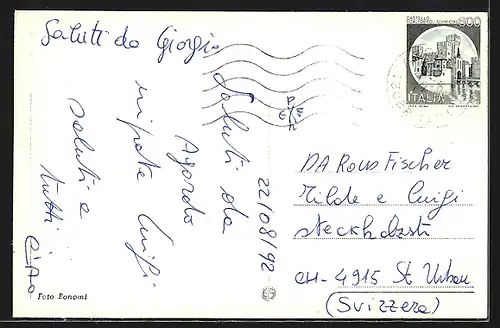 Saluti da Giorgio
Saluti da
Agordo
nipote Luigi
saluti a
tutti
CIAO
22/08/92
PER
DA ROUS Fischer
Tilde e Luigi
Steckholzstr
CH-4915 St Urban
(Svizzera)
600
ITALIA
Foto Bonomi